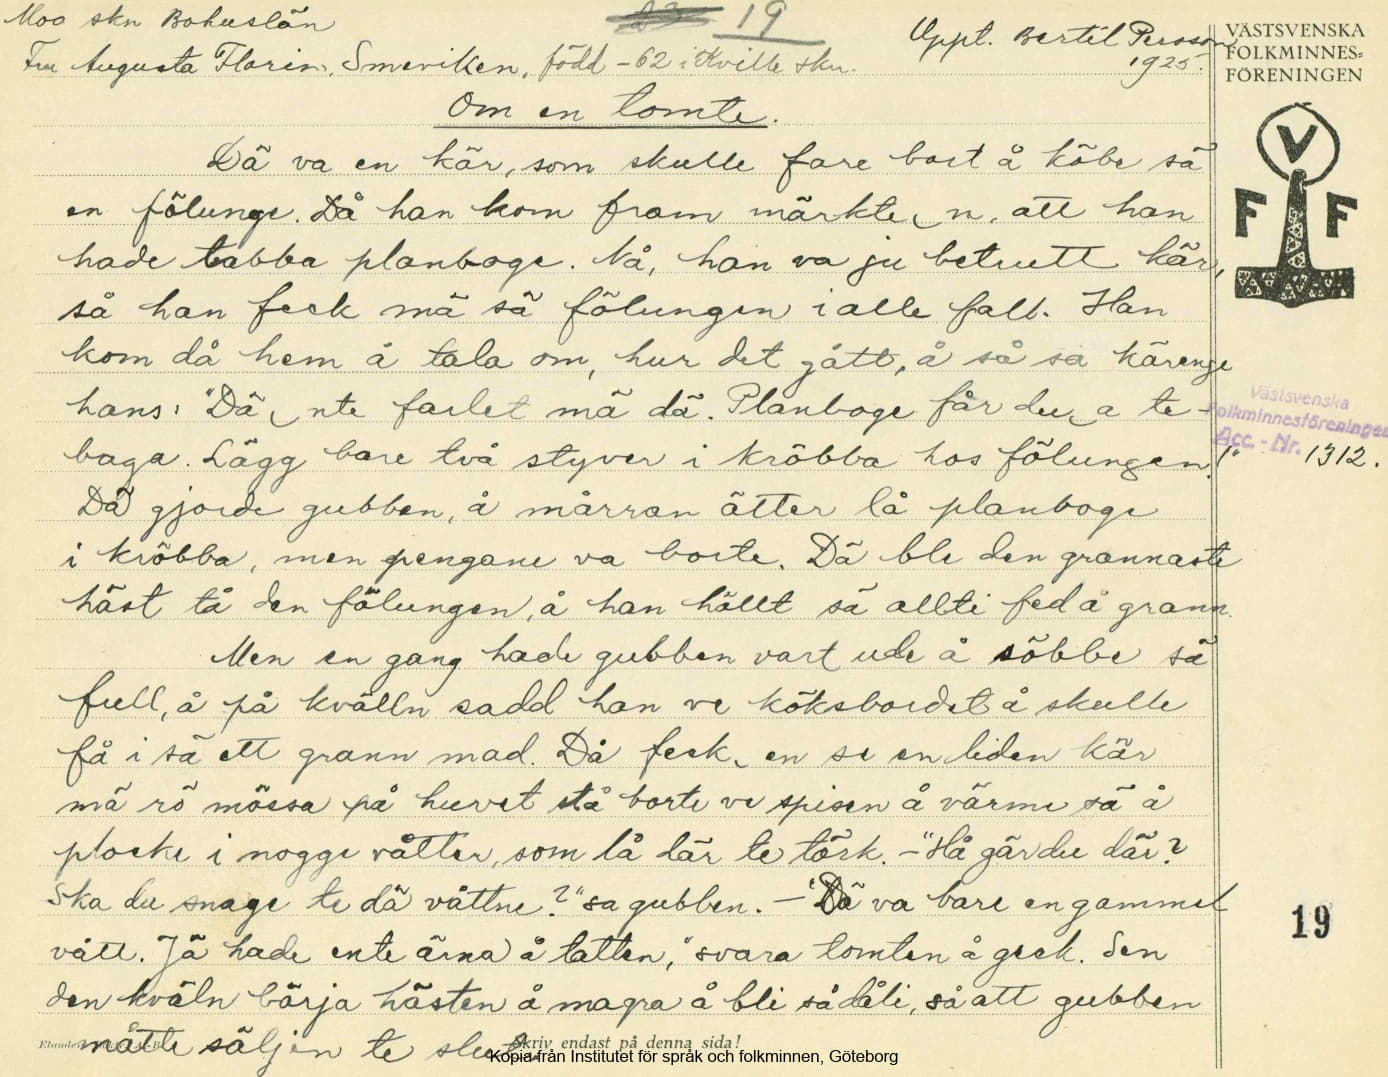 Moo skn Bohuslän
19
Uppt. Bertil Persson
1925.
Fru Augusta Florin, Smeviken, född -62 i Kville skn.
VÄSTSVENSKA
FOLKMINNES=
FÖRENINGEN
V
F F
Om en tomte.
Dä va en kär, som skulle fare bort å köbe sä
en fölunge. Då han kom fram märkte n, att han
hade tabba planboge. Nå, han va ju betrutt kär,
så han feck mä sä fölungen i alle fall. Han
kom då hem å tala om, hur det gått, å så sa kärenge
hans: "Dä nte farlet mä dä. Planboge får du a te-
baga. Lägg bare två styver i kröbba hos fölungen!"
Västsvenska
Folkminnesföreningen
Acc.-Nr. 1312.
Dä gjorde gubben, å mårran ätter lå planboge
i kröbba, men pengane va borte. Dä ble den grannaste
häst tå den fölungen, å han höllt sä allti fed å grann.
Men en gang hade gubben vart ude å söbbe sä
full, å på kvälln sadd han ve köksbordet å skulle
få i sä ett grann mad. Då feck en se en liden kär
mä rö mössa på huvet stå borte ve spisen å värme sä å
plocke i nogge våtter, som lå där te törk. – "Hå gär du där?
Ska du snage te dä våttne?" sa gubben. – "Dä va bare en gammel
vått. Jä hade ente ärna å tatten," svara tomten å geck. Sen
den kväln börja hästen å magra å bli så dåli, så att gubben
måtte säljen te slut.
19
Skriv endast på denna sida!
Kopia från Institutet för språk och folkminnen, Göteborg